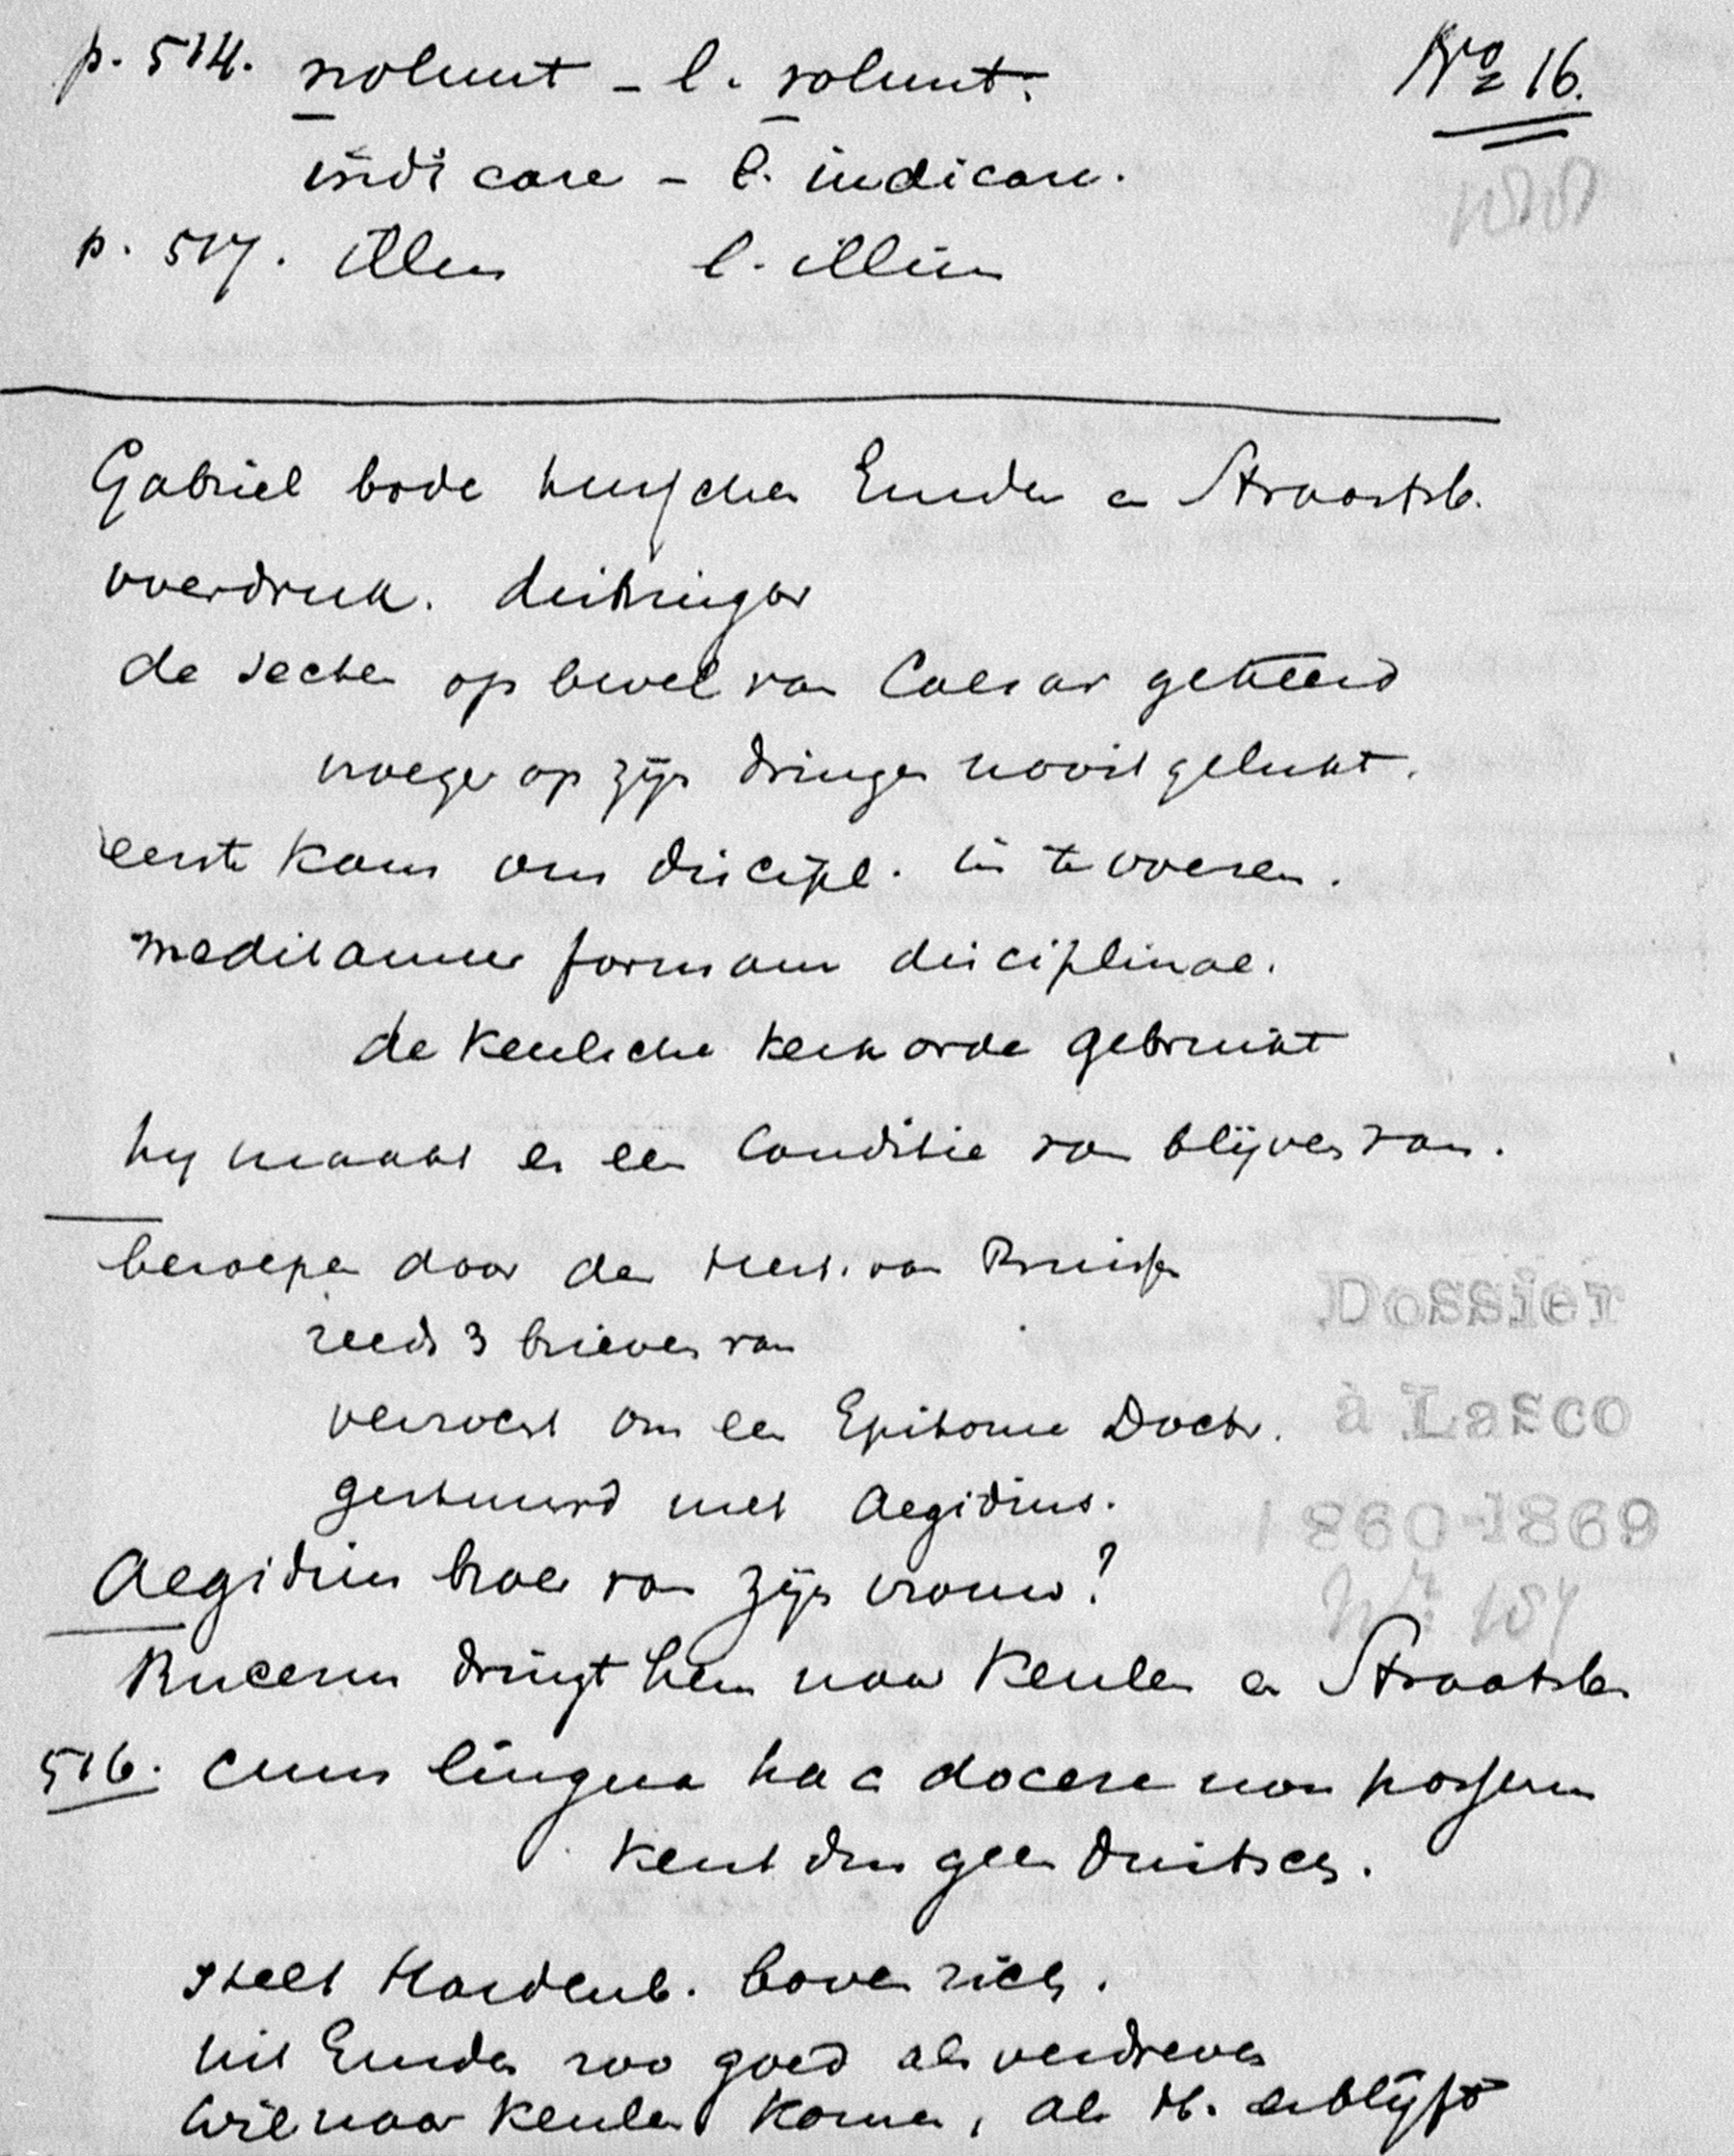 p. 514. nolunt - l. volunt.
No 16.
indicare - l. indicare.
p. 517. illum l. illim
Gabriel bode tusschen Emden en Straatsb.
overdruk.
de secten op bevel van Caesar geweerd
vroeger op zijn dringen nooit gelukt.
eerste kans om discipl. in te voeren.
meditamur formam disciplinae.
de Keulsche kerkorde gebruikt
hij maakt er een Conditie van blijven van.
beroepen door den Hert. van Pruisen
reeds 3 brieven van
verzocht om een Epitome Doctr.
gestuurd met Aegidius.
Dossier
à Lasco
1860-1869
Aegidius broer van zijn vrouw?
No 184
Bucerus dringt hem naar Keulen en Straatsb.
516. cum lingua hac docere non possem
kent dus geen Duitsch.
stelt Hardenb. boven zich.
uit Emden zoo goed als verdreven
wil naar Keulen komen, als H. er blijft